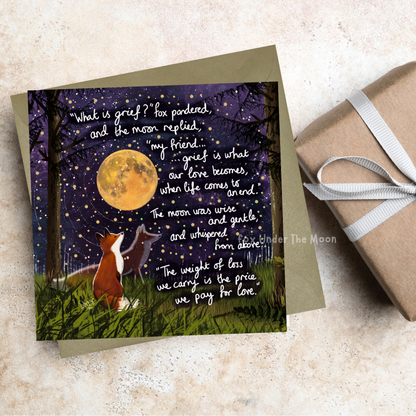 "What is grief?" fox pondered,
and the moon replied,
"my friend...
...grief is what
our love becomes,
when life comes to
an end.
The moon was wise
and gentle,
and whispered
from above...
"The weight of loss
we carry is the price
we pay for love."
Under The Moon